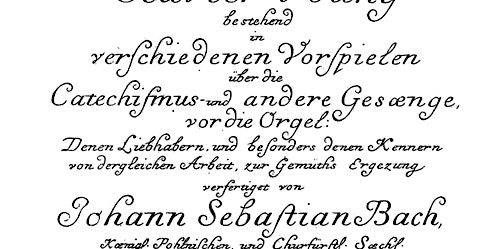 bestehend
in
verſchiedenen Vorſpielen
über die
Catechiſmus-und andere Gesænge,
vor die Orgel:
Denen Liebhabern, und besonders denen Kennern
von dergleichen Arbeit, zur Gemüths Ergezung
verfertiget von
Johann Sebaſtian Bach,
Kœnigl. Pohlniſchen, und Churfürſtl. Sæchſ.